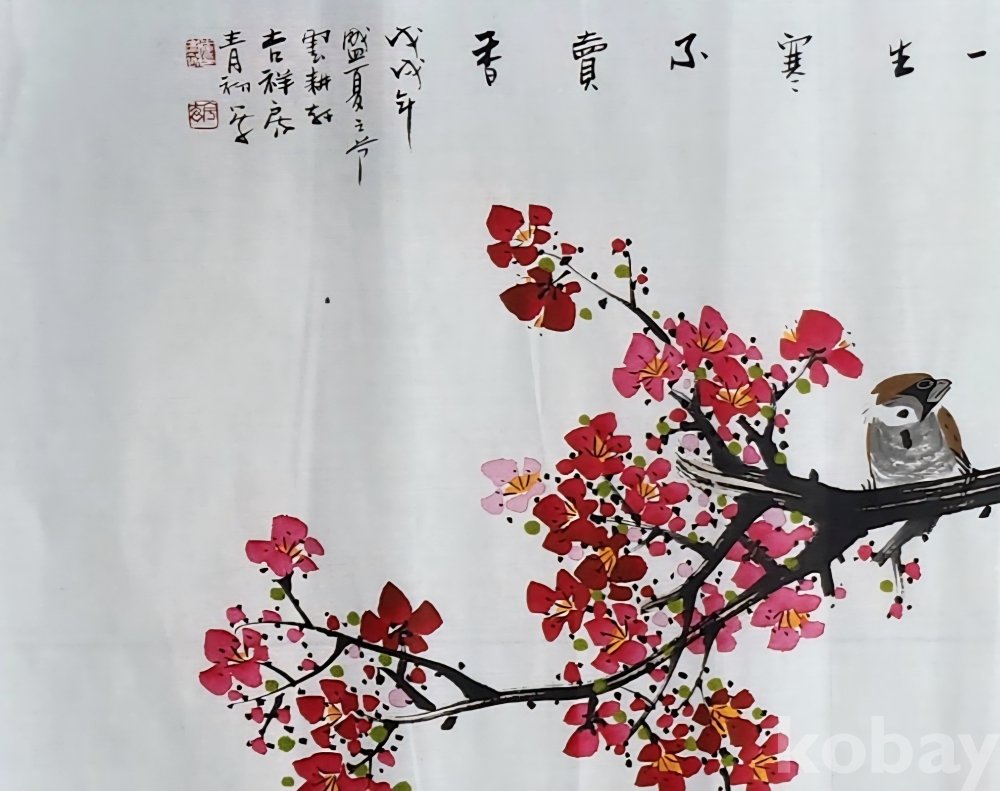 一生寒不賣香
戊戌年
盛夏之节
雲耕軒
吉祥房
青初
kobay